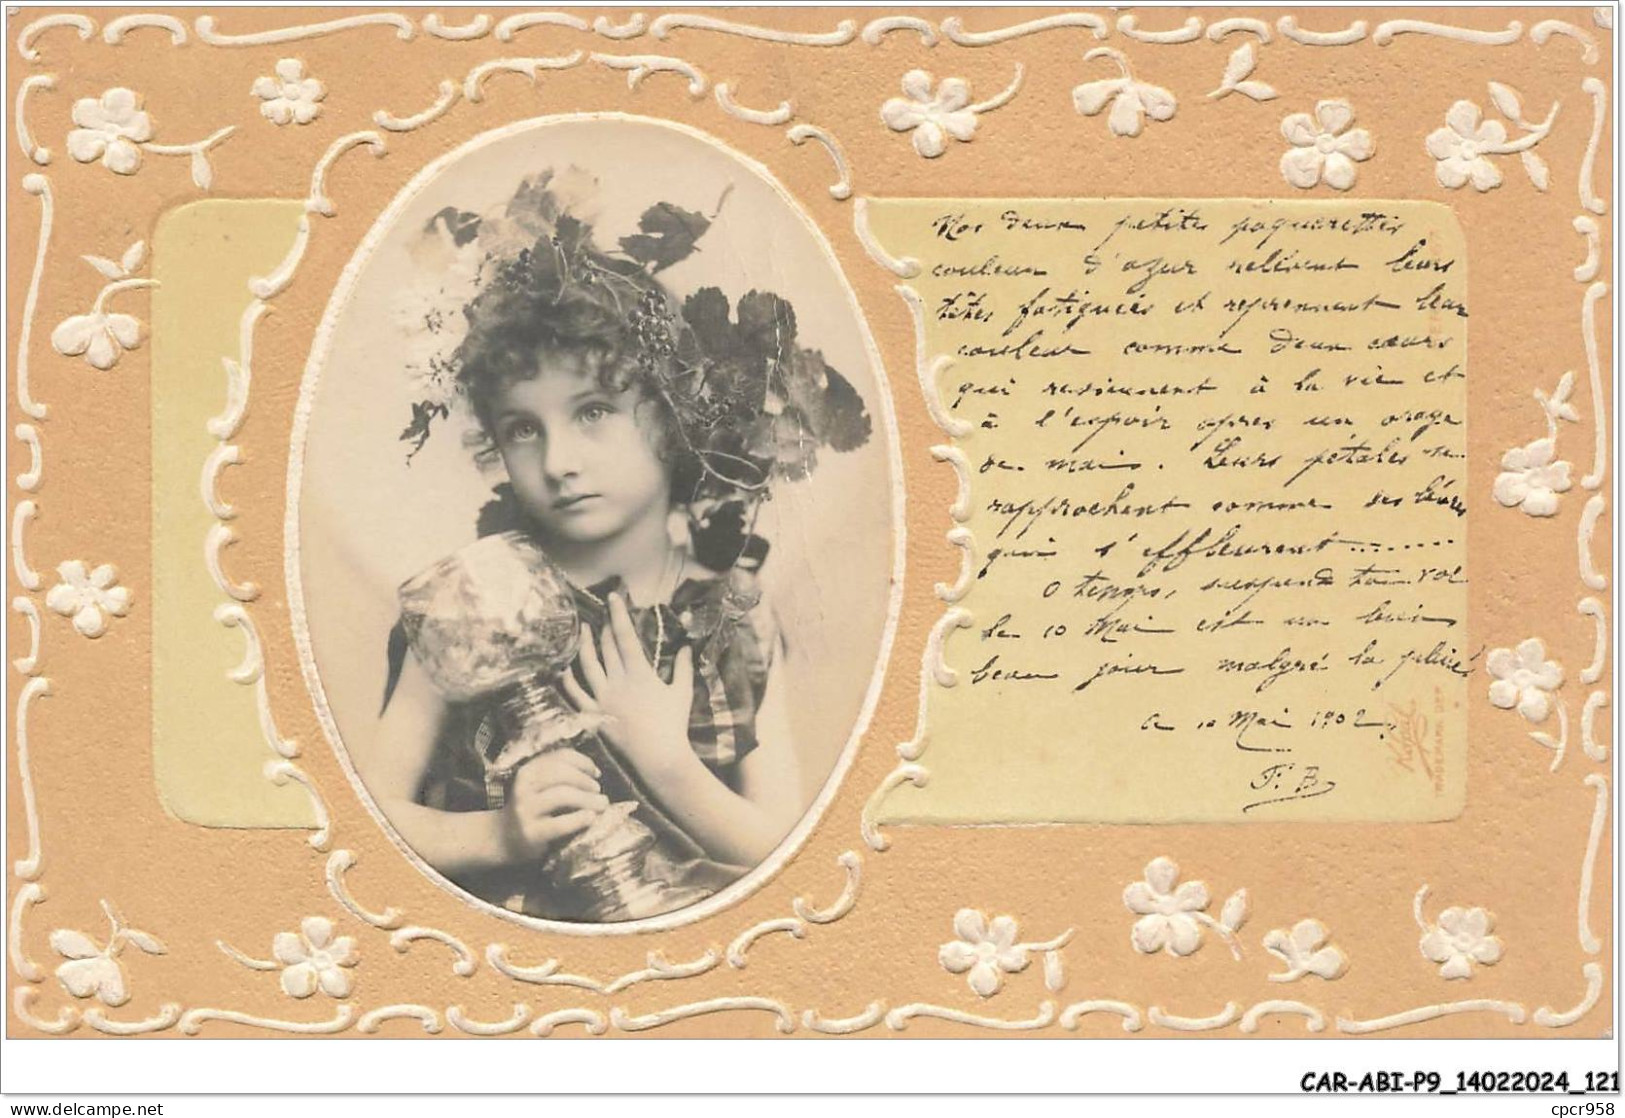 Nos deux petites paquerettes
couleur d'azur relèvent leurs
têtes fatiguées et reprennent leur
couleur comme deux cœurs
qui reviennent à la vie et
à l'espoir apres un orage
de mai. Leurs pétales se
rapprochent comme des lèvres
qui s'effleurent........
O temps, suspends ton vol
le 10 Mai est un bien
beau jour malgré la pluie!
le 10 Mai 1902.
F. B
CAR-ABI-P9_14022024_121
cpcr958